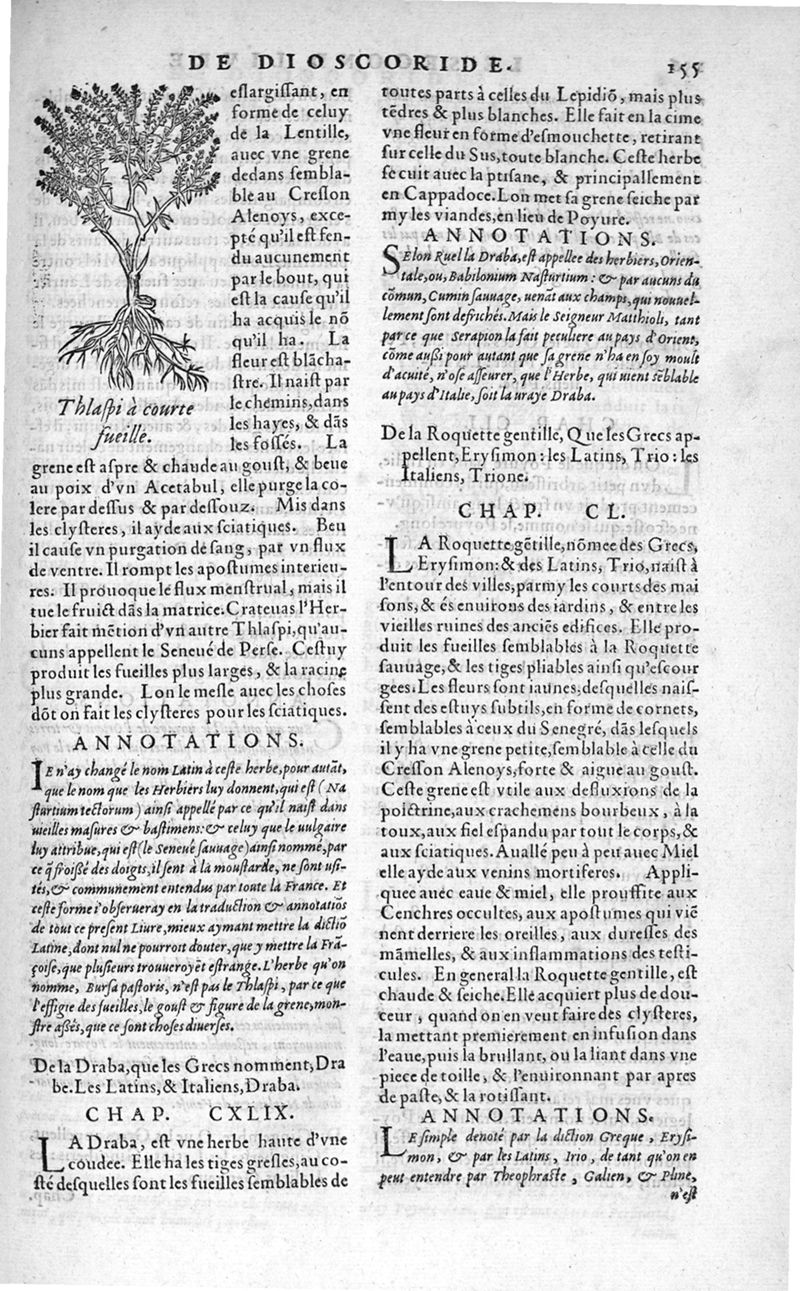 DE DIOSCORIDE. 155
eslargissant, en
forme de celuy
de la Lentille,
auec vne grene
dedans sembla-
ble au Cresson
Alenoys, exce-
pté qu'il est fen-
du aucunement
par le bout, qui
est la cause qu'il
ha acquis le nō
qu'il ha. La
fleur est blācha-
stre. Il naist par
le chemins, dans
les hayes, & dās
les fossés. La
Thlaspi à courte
fueille.
grene est aspre & chaude au goust, & beue
au poix d'vn Acetabul, elle purge la co-
lere par dessus & par dessouz. Mis dans
les clysteres, il ayde aux sciatiques. Beu
il cause vn purgation de sang, par vn flux
de ventre. Il rompt les apostumes interieu-
res. Il prouoque le flux menstrual, mais il
tue le fruict dās la matrice. Crateuas l'Her-
bier fait mētion d'vn autre Thlaspi, qu'au-
cuns appellent le Seneué de Perse. Cestuy
produit les fueilles plus larges, & la racine
plus grande. Lon le mesle auec les choses
dōt on fait les clysteres pour les sciatiques.
ANNOTATIONS.
IE n'ay changé le nom Latin à ceste herbe, pour autāt,
que le nom que les Herbiers luy donnent, qui est (Na
sturtium tectorum) ainsi appellé par ce qu'il naist dans
uieilles masures & bastimens: & celuy que le uulgaire
luy attribue, qui est (le Seneué sauuage) ainsi nommé, par
ce q̃ froissé des doigts, il sent à la moustarde, ne sont usi-
tés, & communement entendus par toute la France. Et
ceste forme i'obserueray en la traduction & annotatiōs
de tout ce present Liure, mieux aymant mettre la dictiō
Latine, dont nul ne pourroit douter, que y mettre la Frā-
çoise, que plusieurs trouueroyēt estrange. L'herbe qu'on
nomme, Bursa pastoris, n'est pas le Thlaspi, par ce que
l'effigie des fueilles, le goust & figure de la grene, mon-
stre assés, que ce sont choses diuerses.
De la Draba, que les Grecs nomment, Dra
be. Les Latins, & Italiens, Draba.
CHAP. CXLIX.
LA Draba, est vne herbe haute d'vne
coudee. Elle ha les tiges gresles, au co-
sté desquelles sont les fueilles semblables de
toutes parts à celles du Lepidiō, mais plus
tēdres & plus blanches. Elle fait en la cime
vne fleur en forme d'esmouchette, retirant
sur celle du Sus, toute blanche. Ceste herbe
se cuit auec la ptisane, & principallement
en Cappadoce. Lon met sa grene seiche par
my les viandes, en lieu de Poyure.
ANNOTATIONS.
SElon Ruel la Draba, est appellee des herbiers, Orien-
tale, ou, Babilonium Nasturtium: & par aucuns du
cōmun, Cumin sauuage, uenāt aux champs, qui nouuel-
lement sont defrichés. Mais le Seigneur Matthioli, tant
par ce que Serapion la fait peculiere au pays d'Orient,
cōme aussi pour autant que sa grene n'ha en soy moult
d'acuité, n'ose asseurer, que l'Herbe, qui uient sēblable
au pays d'Italie, soit la uraye Draba.
De la Roquette gentille, Que les Grecs ap-
pellent, Erysimon: les Latins, Trio: les
Italiens, Trione.
CHAP. CL.
LA Roquette gētille, nōmee des Grecs,
Erysimon: & des Latins, Trio, naist à
l'entour des villes, parmy les courts des mai
sons, & és enuirons des iardins, & entre les
vieilles ruines des anciēs edifices. Elle pro-
duit les fueilles semblables à la Roquette
sauuage, & les tiges pliables ainsi qu'escour
gees. Les fleurs sont iaunes, desquelles nais-
sent des estuys subtils, en forme de cornets,
semblables à ceux du Senegré, dās lesquels
il y ha vne grene petite, semblable à celle du
Cresson Alenoys, forte & aigue au goust.
Ceste grene est vtile aux defluxions de la
poictrine, aux crachemens bourbeux, à la
toux, aux fiel espandu par tout le corps, &
aux sciatiques. Auallé peu à peu auec Miel
elle ayde aux venins mortiferes. Appli-
quee auec eaue & miel, elle prouffite aux
Cenchres occultes, aux apostumes qui viē
nent derriere les oreilles, aux duresses des
māmelles, & aux inflammations des testi-
cules. En general la Roquette gentille, est
chaude & seiche. Elle acquiert plus de dou-
ceur, quand on en veut faire des clysteres,
la mettant premierement en infusion dans
l'eaue, puis la brullant, ou la liant dans vne
piece de toille, & l'enuironnant par apres
de paste, & la rotissant.
ANNOTATIONS.
LE simple denoté par la diction Greque, Erysi-
mon, & par les Latins, Irio, de tant qu'on en
peut entendre par Theophraste, Galien, & Pline,
n'est